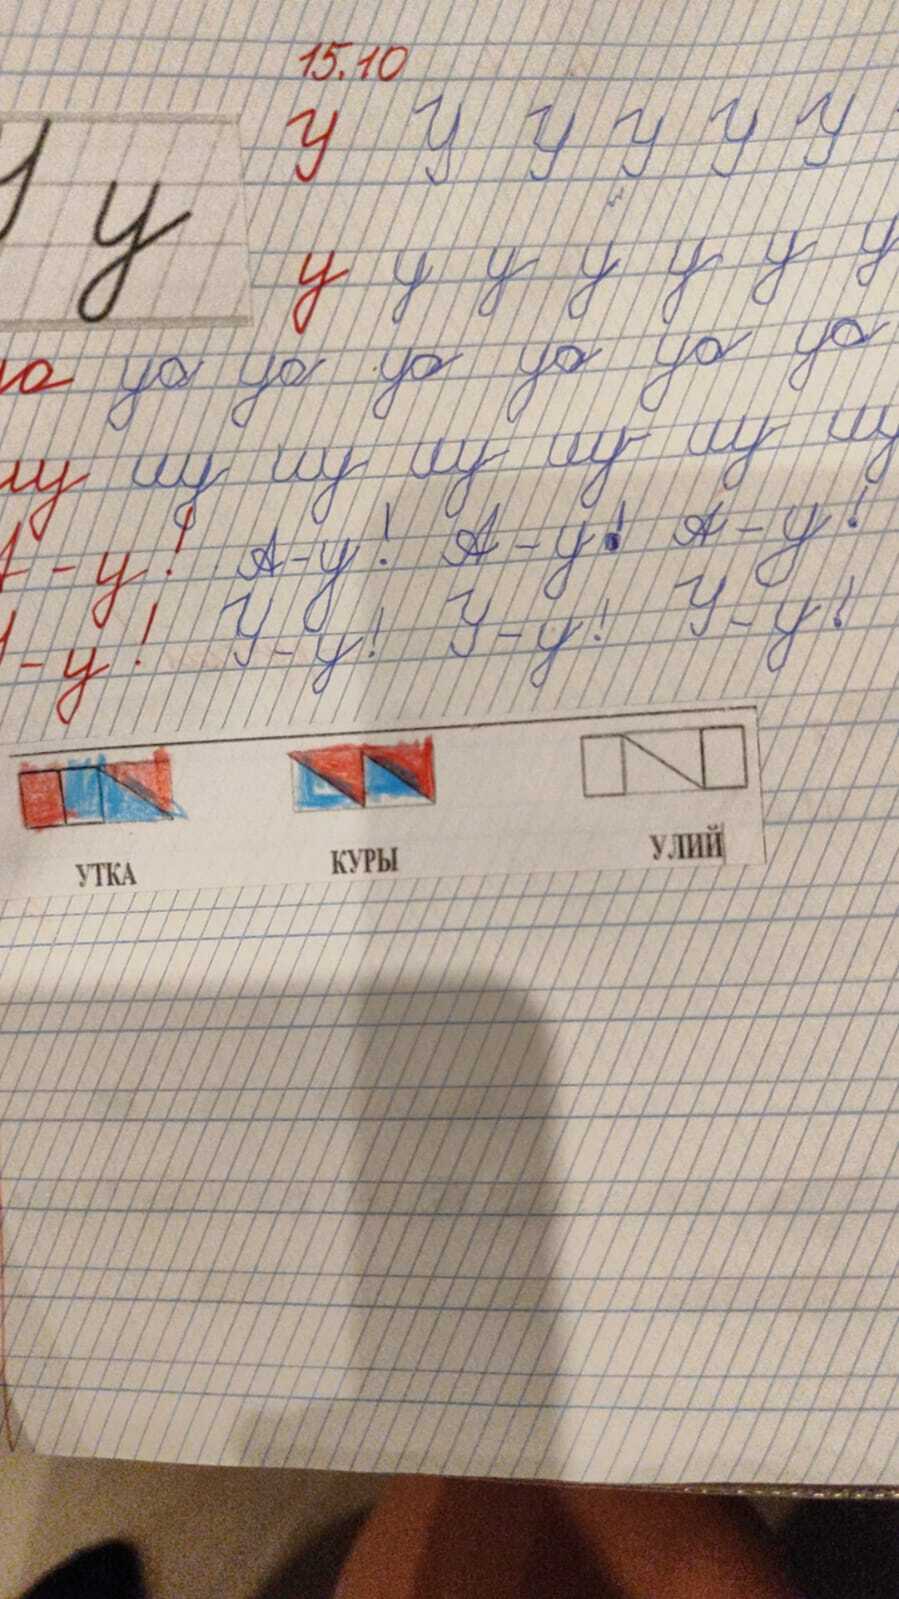 15.10
У у У У У У У У
у у у у у у у
уа уа уа уа уа уа уа
иу иу иу иу иу иу иу
А-у! А-у! А-у! А-у!
У-у! У-у! У-у! У-у!
УТКА КУРЫ УЛИЙ